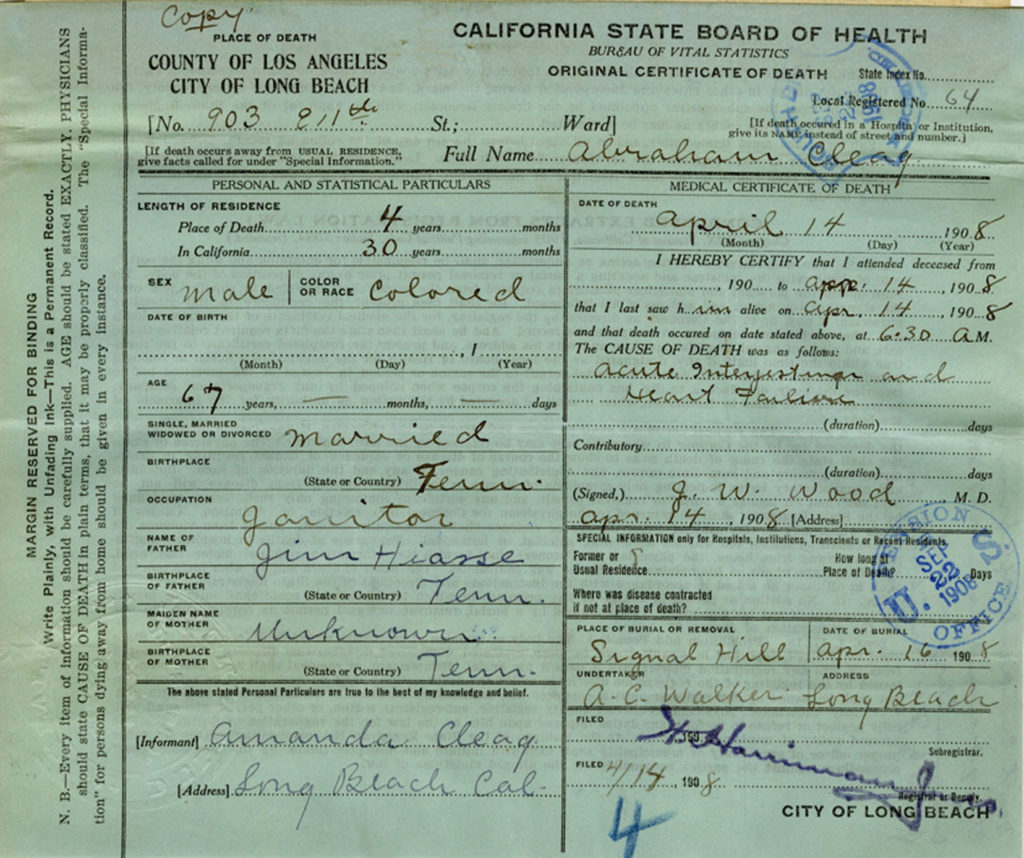 Copy
PLACE OF DEATH
COUNTY OF LOS ANGELES
CITY OF LONG BEACH
CALIFORNIA STATE BOARD OF HEALTH
BUREAU OF VITAL STATISTICS
ORIGINAL CERTIFICATE OF DEATH
State Index No.
Local Registered No. 64
[No. 903 E 11th St.; Ward]
[If death occured in a Hospital or Institution, give its NAME instead of street and number.]
[If death occurs away from USUAL RESIDENCE, give facts called for under "Special Information."]
Full Name Abraham Cleag
PERSONAL AND STATISTICAL PARTICULARS
LENGTH OF RESIDENCE
Place of Death 4 years months
In California 30 years months
SEX male COLOR OR RACE Colored
DATE OF BIRTH
, 1
(Month) (Day) (Year)
AGE
67 years, — months, — days
SINGLE, MARRIED
WIDOWED OR DIVORCED married
BIRTHPLACE
(State or Country) Tenn.
OCCUPATION
Janitor
NAME OF
FATHER Jim Hiasse
BIRTHPLACE
OF FATHER
(State or Country) Tenn.
MAIDEN NAME
OF MOTHER Unknown
BIRTHPLACE
OF MOTHER
(State or Country) Tenn.
The above stated Personal Particulars are true to the best of my knowledge and belief.
[Informant] Amanda Cleag
[Address] Long Beach Cal.
MEDICAL CERTIFICATE OF DEATH
DATE OF DEATH
April 14 1908
(Month) (Day) (Year)
I HEREBY CERTIFY that I attended deceased from
, 190 to apr. 14, 1908
that I last saw him alive on apr. 14, 1908
and that death occured on date stated above, at 6:30 A M.
The CAUSE OF DEATH was as follows:
acute and
Heart Failure
(duration) days
Contributory
(duration) days
(Signed,) J. W. Wood, M. D.
apr. 14, 1908 [Address]
SPECIAL INFORMATION only for Hospitals, Institutions, Transcients or Recent Residents.
Former or
Usual Residence
How long at
Place of Death? Days
Where was disease contracted
if not at place of death?
PLACE OF BURIAL OR REMOVAL
Signal Hill
DATE OF BURIAL
apr. 16 1908
UNDERTAKER
A. C. Walker
ADDRESS
Long Beach
FILED
190
Subregistrar.
FILED 4/14 1908
Registrar or Deputy.
CITY OF LONG BEACH
4
PENSION OFFICE
U. S.
SEP 22 1908
MARGIN RESERVED FOR BINDING
Write Plainly, with Unfading Ink—This is a Permanent Record.
N. B.—Every item of Information should be carefully supplied. AGE should be stated EXACTLY. PHYSICIANS
should state CAUSE OF DEATH in plain terms, that it may be properly classified. The "Special Informa-
tion" for persons dying away from home should be given in every instance.